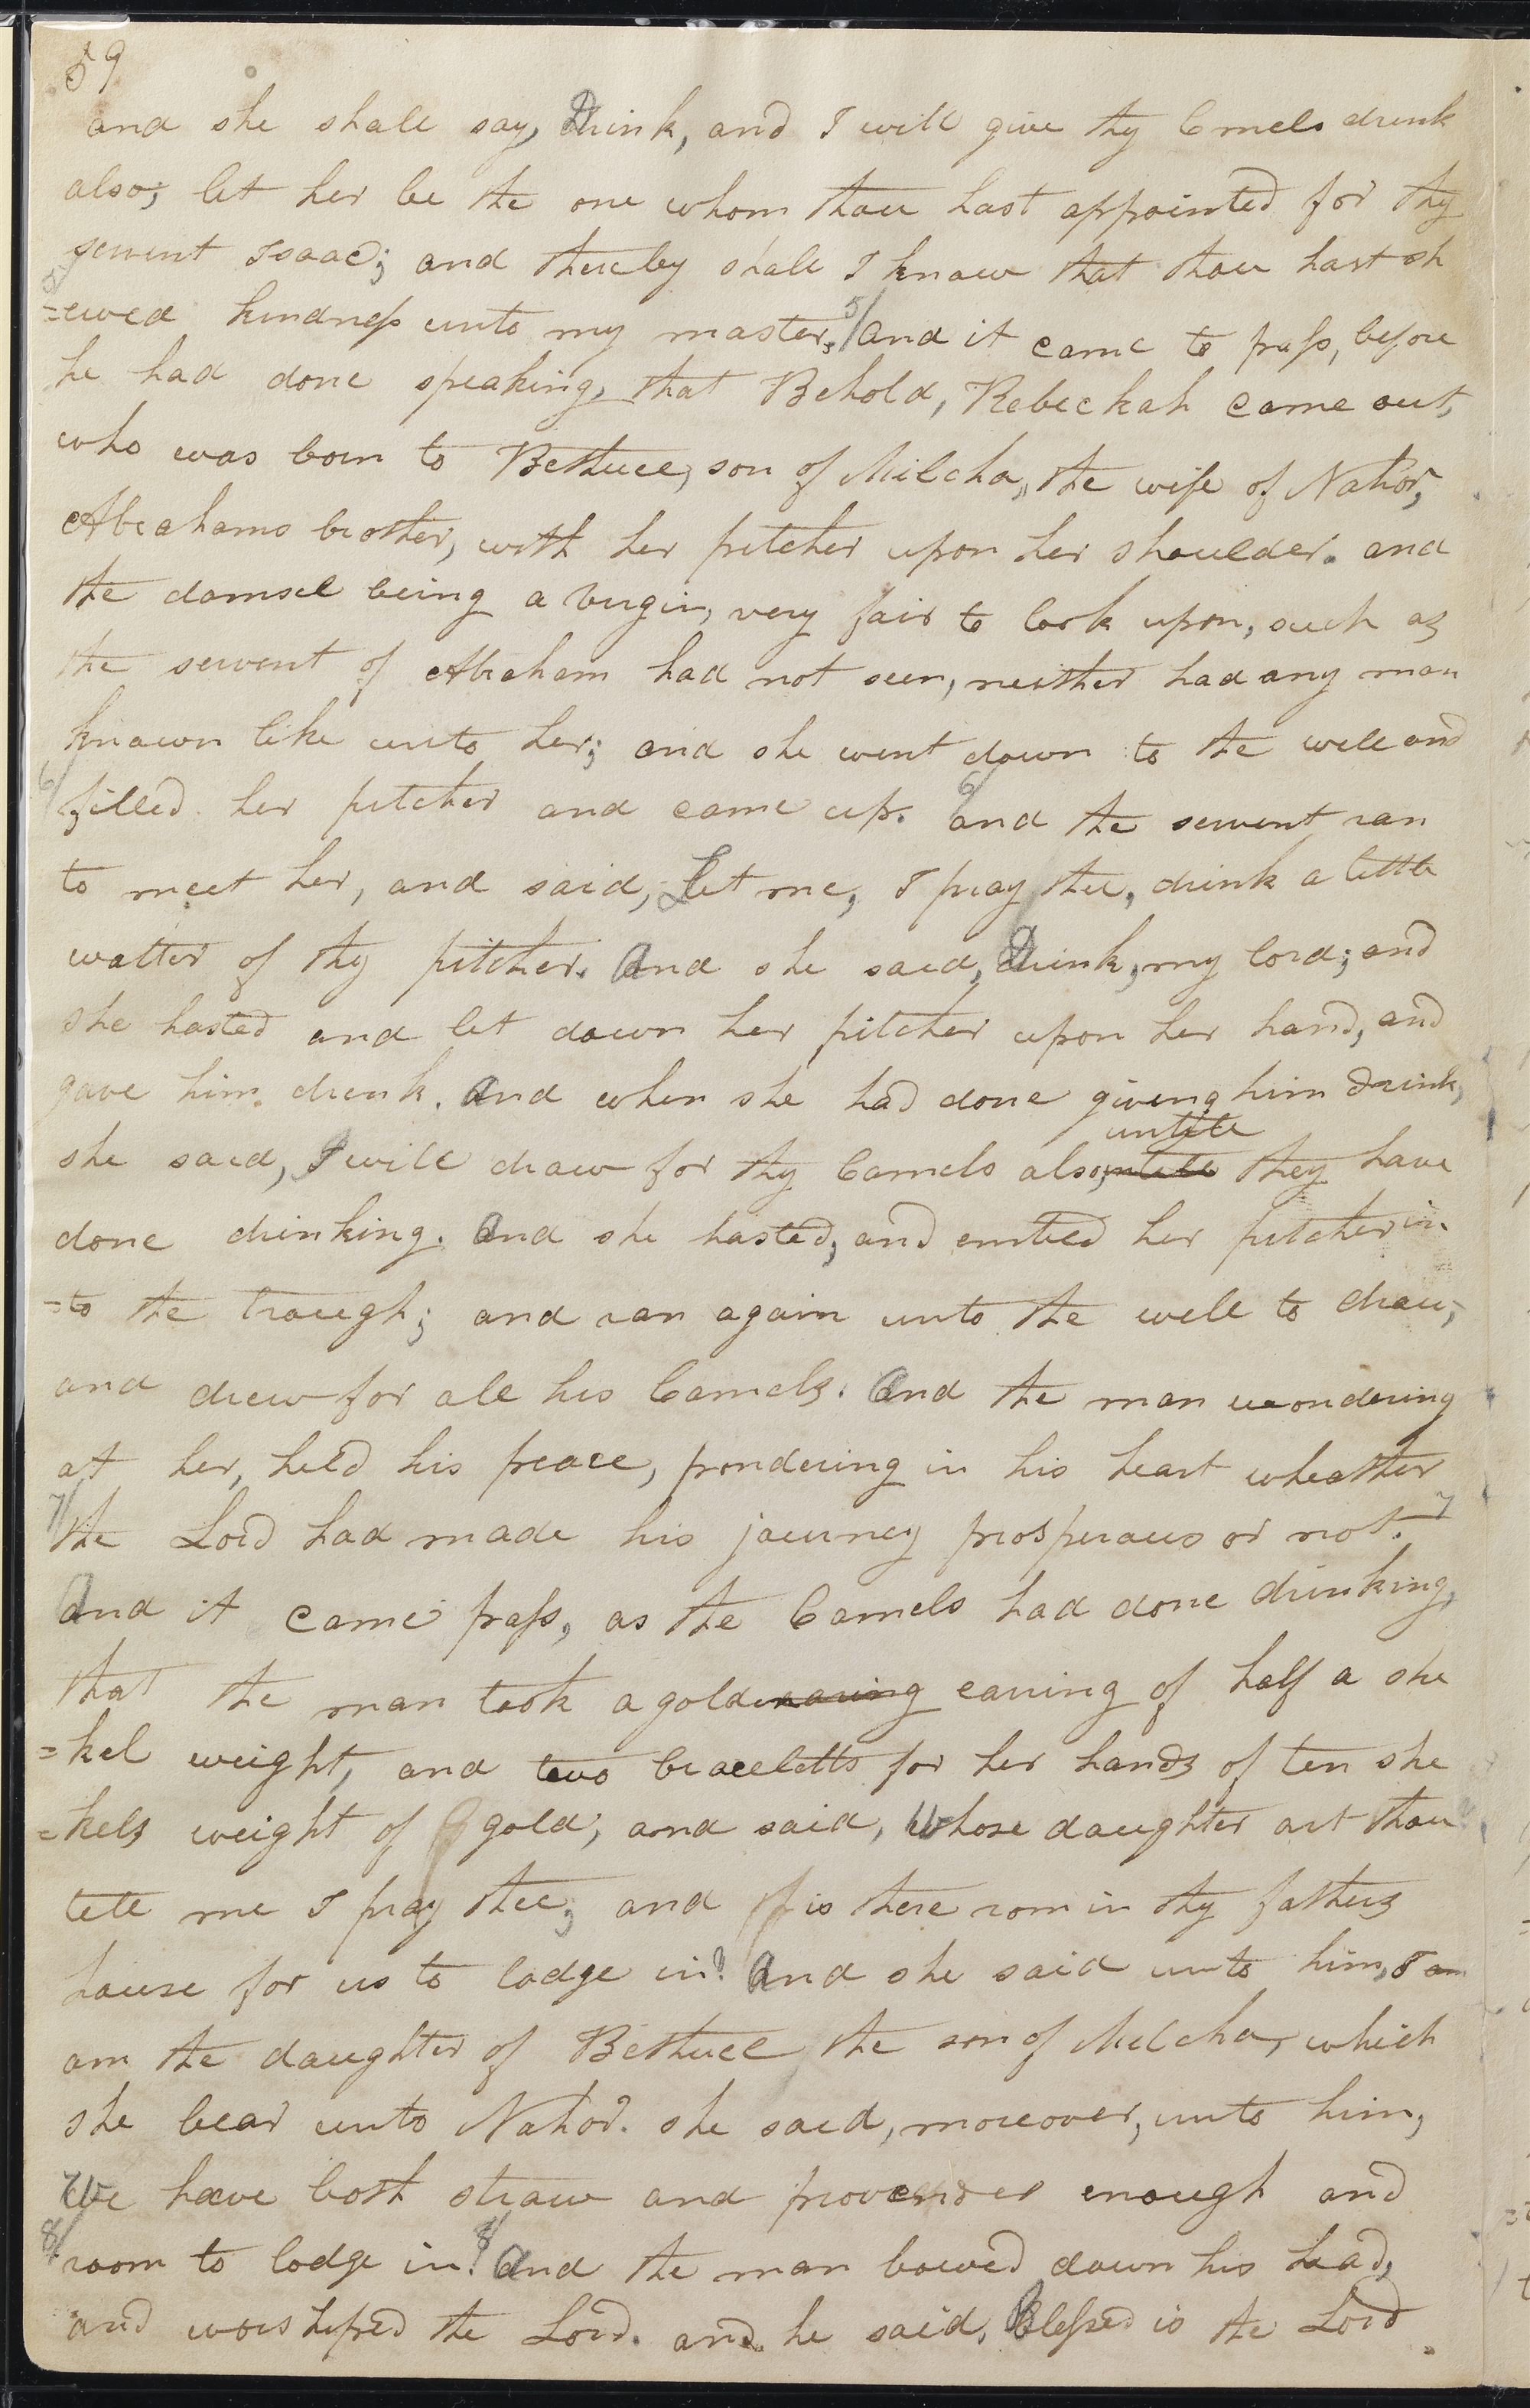 59
and she shall say, Drink, and I will give thy Cmels drink
also; let her be the one whom thou hast appointed for thy
servent Isaac; and thereby shall I know that thou hast sh
5/
=ewed kindness unto my master. 5/ and it came to pass, before
he had done speaking, that Behold, Rebeckah came out,
who was born to Bethuel, son of Milcha, the wife of Nahor,
Abrahams brother, with her pitcher upon her shoulder. and
the damsel being a virgin, very fair to look upon, such as
the servent of Abraham had not seen, neither had any man
known like unto her; and she went down to the well and
6/ filled her pitcher and came up. 6/ and the servent ran
to meet her, and said, Let me, I pray thee, drink a little
watter of thy pitcher. And she said, Drink, my lord; and
she hasted and let down her pitcher upon her hand, and
gave him drink. And when she had done giveng him drink,
untill
she said, I will draw for thy Camels also, untill they have
done drinking. And she hasted, and emtied her pitcher in
=to the trough; and ran again unto the well to draw,
and drew for all his Camels. And the man wondering
at her, held his peace, pondering in his heart wheather
7/ the Lord had made his journey prosperous or not. 7
And it came pass, as the Camels had done drinking,
that the man took a golden earing of half a she
=kel weight, and two braceletts for her hands of ten she
=kels weight of gold; and said, Whose daughter art thou
tell me I pray thee; and is there rom in thy fathers
house for us to lodge in? And she said unto him, I am
am the daughter of Bethuel the son of Milcha, which
she bear unto Nahor. she said, moreover, unto him,
We have both straw and provender enough and
8/ room to lodge in. 8/ And the man bowed down his head,
and worshiped the Lord. and he said, Blessed is the Lord